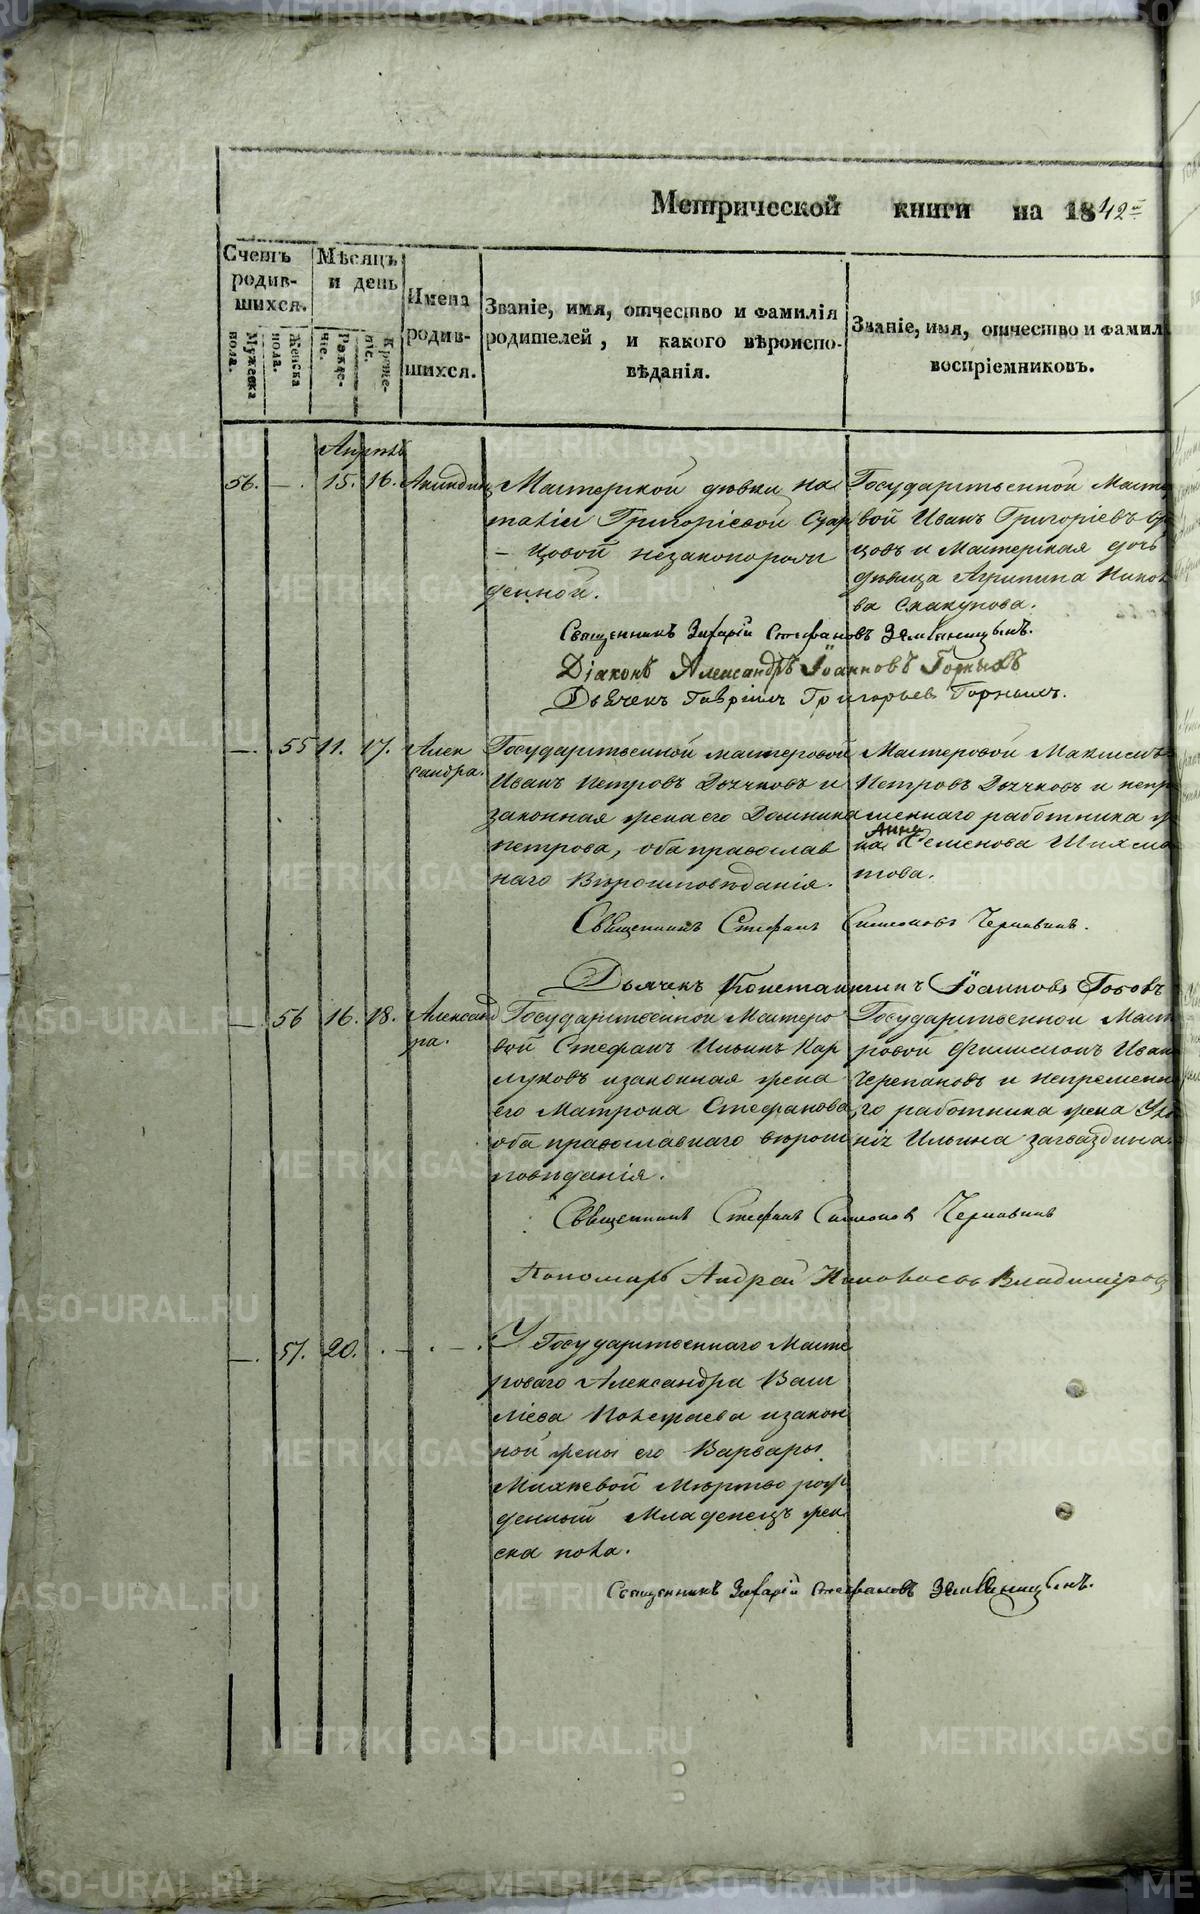 Метрической книги на 1842й
Счетъ родив-шихся.
Мужеска пола.
Женска пола.
Мѣсяцъ и день
Рожде-ніе.
Креще-ніе.
Имена родив-шихся.
Званіе, имя, отчество и фамилія
родителей, и какого вѣроиспо-
вѣданія.
Званіе, имя, отчество и фамил
воспріемниковъ.
Апрѣль
56. — 15. 16. Акиндинъ
Мастерской дѣвки На
таліи Григоріевой
– цовой незаконорож
денной.
Государственной Масте
вой Иванъ Григоріевъ
цовъ и Мастерская дочь
дѣвица Агрипина
ва Скакунова.
Священникъ Захарій Стефановъ Земляницынъ.
Діаконъ Александръ Іоанновъ Горныхъ
Дьячекъ Гавріилъ Григорьевъ Горныхъ.
—. 55 11. 17. Алек
сандра.
Государственной мастеровой
Иванъ Петровъ Дьячковъ и
законная жена его Домника
петрова, оба православ
наго Вѣроисповѣданія.
Мастеровой Максимъ
Петровъ Дьячковъ и непр
меннаго работника ж
на Анна Семенова Шихма
това.
Священникъ Стефанъ Симеоновъ Чернавинъ.
Дьячекъ Константинъ Іоанновъ Поповъ
—. 56 16. 18. Александ
ра.
Государственной Мастеро
вой Стефанъ Ильинъ Кар
луковъ изаконная жена
его Матрона Стефанова,
оба православнаго вѣрои
повѣданія.
Государственной Маст
ровой Филимонъ Иван
Черепановъ и непременн
го работника жена
Ильина загваздина.
Священникъ Стефанъ Симеоновъ Чернавинъ
Пономарь Андрей Владиміровъ
—. 57. 20. . — . — .
У Государственнаго Масте
роваго Александра Васи
ліева изакон
ной жены его Варвары
Михѣевой Мертво рож
денный Младенецъ жен
ска пола.
Священникъ Захарій Стефановъ Земляницынъ.
METRIKI.GASO-URAL.RU